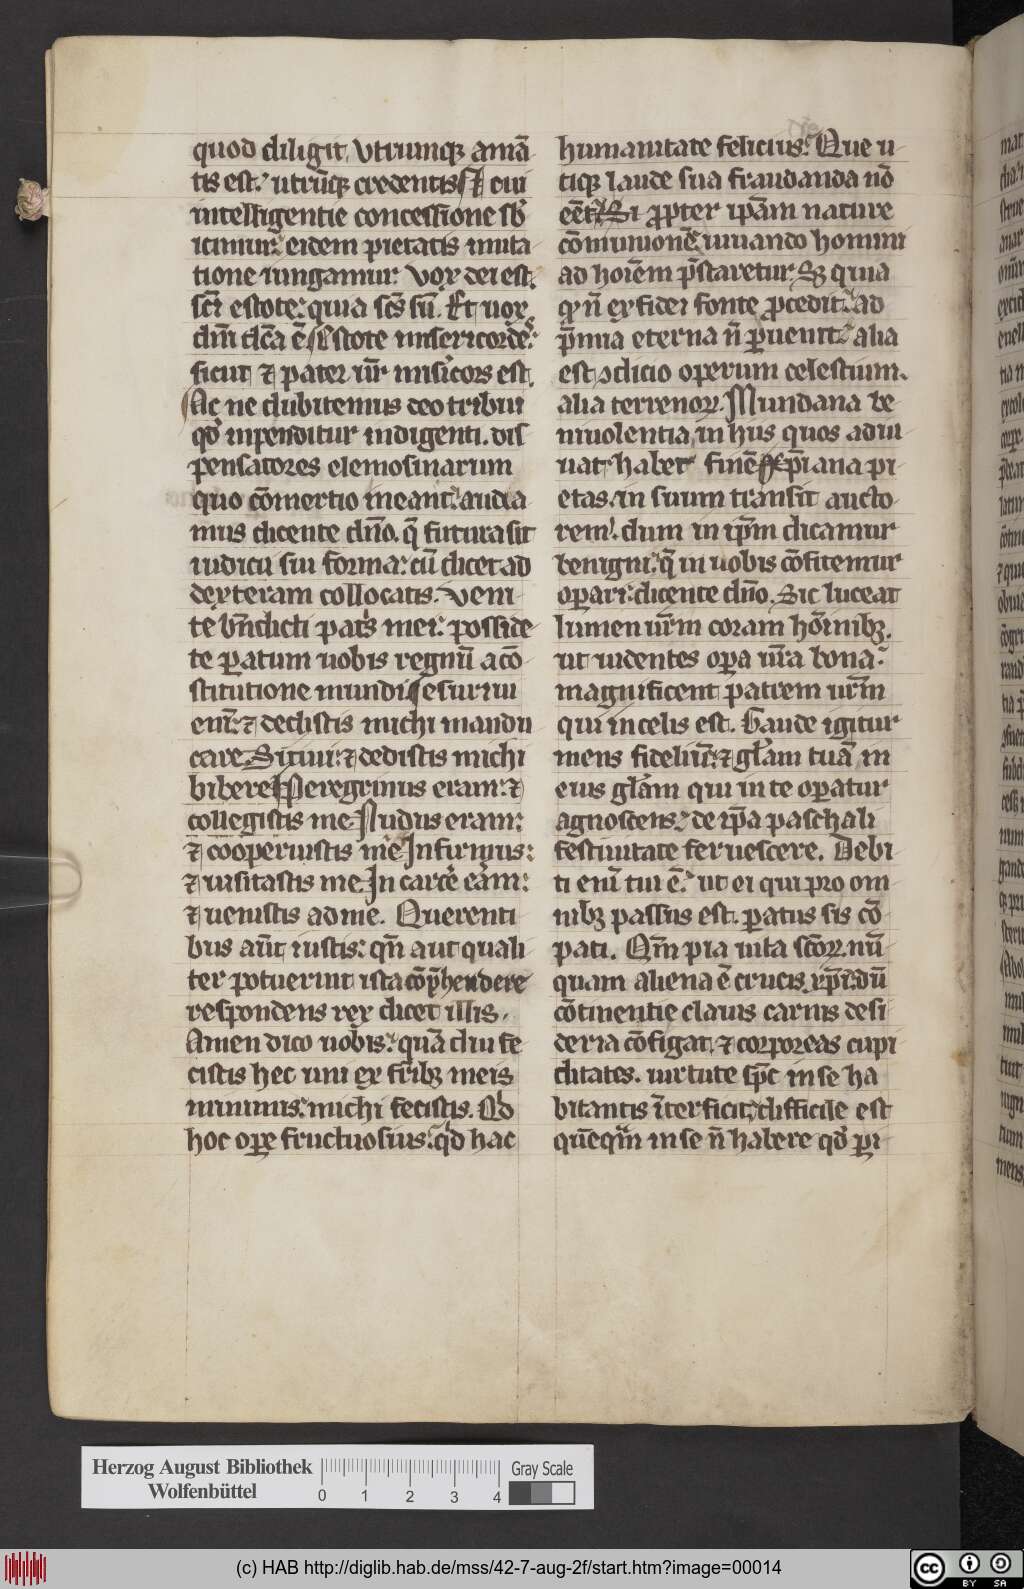 quod diligit. Vtriumqz amā
tis est. utrūqz credentis. Et cui
intelligentie concessione sb
icimur: eidem pietatis imita
tione iungamur. Vox dei est.
scī estote: quia scs sū. Et uox
dnī dcā ē Estote misericordes
sicut ⁊ pater ur misicors est.
Ac ne dubitemus deo tribui
qd inpenditur indigenti. dis
pensatores elemosinarum
quo cōmertio meant: audia
mus dicente dnō. q̄ futura sit
iudicii sui forma: cū dicet ad
dexteram collocatis. Veni
te bn̄dicti pats mei: posside
te paratum uobis regnū a cō
stitutione mundi Esuriui
enī: ⁊ dedistis michi mandu
care. Sitiui: ⁊ dedistis michi
bibere Peregrinus eram: ⁊
collegistis me Nudus eram:
⁊ cooperuistis me Infirmus:
⁊ uisitastis me In carcē erām:
⁊ uenistis ad me. Querenti
bus aūt iustis: qn̄ aut quali
ter potuerint ista cōp̄hendere
respondens rex dicet illis.
Amen dico uobis: quādiu fe
cistis hec uni ex frībz meis
minimis: michi fecistis. Qd
hoc ope fructuosius: qd hac
humanitate felicius: Que u
tiqz laude sua fraudanda nō
eēt: Si ppter ipām nature
cōmunionē iuuando homini
ad hoiēm p̄staretur. Sz quia
q̄ n̄ ex fidei fonte pcedit: ad
p̄mia eterna n̄ peruenit: alia
est ɔdicio operum celestium.
alia terrenoꝝ. Mundana be
niuolentia in hiis quos adiu
uat: habet finē xp̄iana pi
etas: in suum transit aucto
rem: dum in ip̄m dicamur
benigni: q̄ in uobis cōfitemur
operari: dicente dnō. Sic luceat
lumen ur̄m coram hōinibz.
ut uidentes opera ur̄a bona:
magnificent patrem ur̄m
qui in celis est. Gaude igitur
mens fideliū: ⁊ glām tuā in
eius glām qui in te operatur
agnoscens: de ip̄a paschali
festiuitate feruescere. Debi
ti enī tui ē: ut ei qui pro om
nibz passus est. paratus sis cō
pati. Qm̄ pia uita scōꝝ. nū
quam aliena ē crucis xp̄i: dū
cōtinentie clauis carnis desi
deria cōfigat. ⁊ corporeas cupi
ditates. uirtute sp̄c in se ha
bitantis īterficit: difficile est
quēqm̄ in se n̄ habere qd pi
Herzog August Bibliothek
Wolfenbüttel
0 1 2 3 4
Gray Scale
(c) HAB http://diglib.hab.de/mss/42-7-aug-2f/start.htm?image=00014
cc BY SA